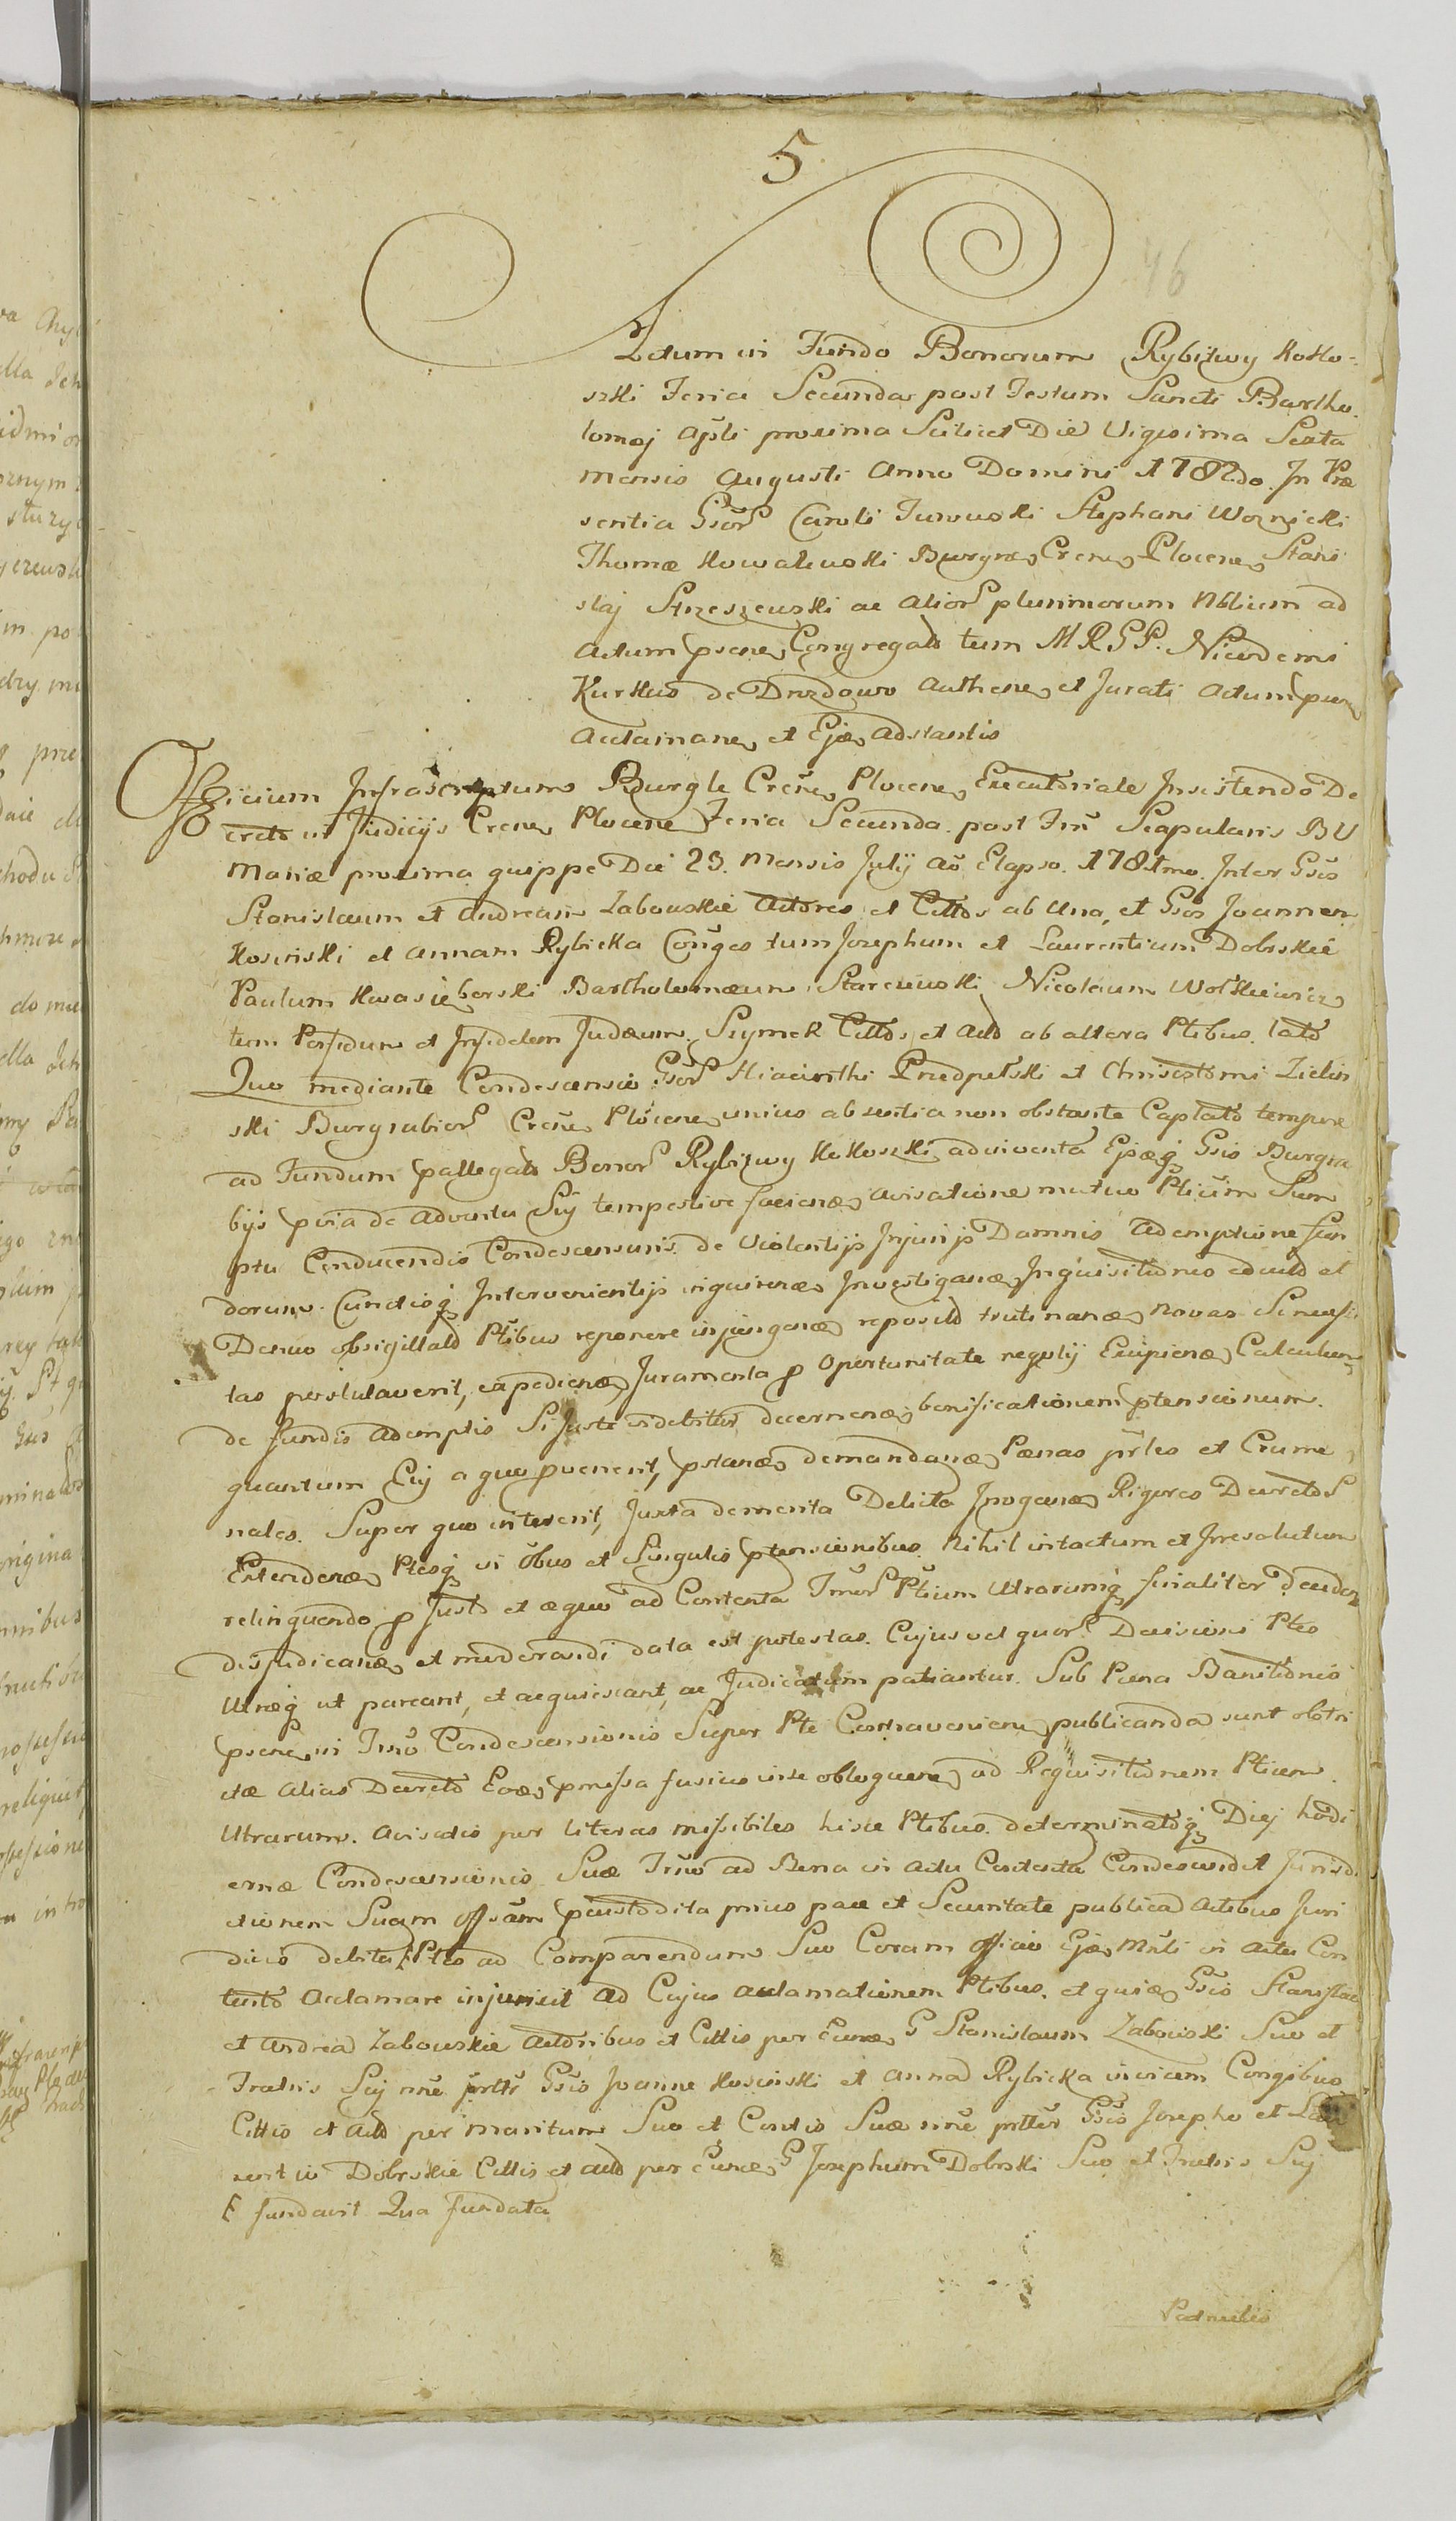 5
46
Actum in Fundo Bonorum Rybitwy Koko-
szki Feria Secunda post Festum Sancti Bartho
lomęj Apłi proxima Scilicet Die Vigesima Sexta
Mensis Augusti Anno Domini 1782do. In Præ
sentia Gsor Caroli Turowski Stephani Woznicki
Thomæ Kowalewski Burgræ Crens Plocens Stani
slaj Strzeszewski ac Alior plurimorum Nbłium ad
Actum psens Congregato tum M R G P. Nicodemi
Kurkus de Drozdowo Authens et Jurati Actum
Acclamans et Ejæ Adstantis
Officium Infrascriptum Burgle Crens Plocens Executoriale Insistendo De
creto in Judicijs Crens Plocens Feria Secunda post Ftm Scapularis B V
Mariæ proxima quippe Die 23. Mensis Julij aõ Elapso 1781mo. Inter Gsos
Stanislaum et Andream Zabowskie Actores et Cittos ab Una, et Gsos Joannem
Kosinski et Annam Rybicka Conges tum Josephum et Laurentium Dobrskie
Paulum Kwasieborski Bartholomæum Starczewski Nicolaum Wołkiewicz
tum Perfidum et Infidelem Judæum Szymek Cittos et Acto ab altera Ptibus lato
Quo mediante Condescensio Gsor Hiacinthi Przedpełski et Chrisostomi Zielin
ski Burgrabior Crens Plocens unius absentia non obstante Captato tempore
ad Fundum pallegato Bonor Rybitwy Kokoszki adinventa Ejæq Gsis Burgra
bijs pvia de adventu Sui tempestive faciena avisatione mutuo Ptium Sum
ptu Conducendis Condescensuris de Violentijs Injurijs Damnis Ademptione fun
dorum Cunctisq Intervenientijs inquirena Investigana Inquisitiones educto et
Denuo obsigillato Ptibus reponere injungena reposito trutinana novas Si necessi
tas postulaverit, expediena Juramenta p Oportunitate negotij Excipiena Calculum
de fundis ademptis Si Juste videbitur decernena bonificationem ptensionum
quantum Cuj a quo pvenerit, pstana demandana Pænas prles et Crimi
nales Super quo intererit, Juxta demerita Debita Irogana Rigores Decretor
Extendena Ptesq in õbus et Singulis ptensionibus Nihil intactum et Irresolutum
relinquendo p Justo et æquo ad Contenta Tmor Ptium Utrarumq finaliter
disjudicana et moderandi data est potestas. Cujus vel quor Decisioni Ptes
Utræq ut pareant, et acquiescant, ac Judicatum patiantur. Sub Pæna Banitionis
psens in Tno Condescensionis Super Pte Contraveniens publicanda sunt obstri
ctæ Alias Decreto Eoæ pmissa fusius in se obloquens ad Requisitionem Ptium
Utrarums. Avisatis per literas missibiles hisce Ptibus determinatoq Diej hodi
ernæ Condescensionis Suæ Tno ad Bona in Actu Contenta Condescendit Jurisdi
ctionem Suam offsam pcustodita prius pace et Securitate publica Actibus Juri
dicis debita Ptes ad Comparendum Suo Coram Officio Ejæ Mnli in Actu Con
tento Acclamare injunxit Ad Cujus acclamationem Ptibus et quiæ Gsis Stanislao
et Andrea Zabowskie Actoribus et Cittis per Eunæ G Stanislaum Zabowski Suo et
Fratris Sui nne prttr Gsis Joanne Kosinski et Anna Rybicka invicem Congibus
Cittis et Acto per Maritum Suo et Csortis Suæ nne prtter Gsis Josepho et Lau
rentio Dobrskie Cittis et Acto per Eunæ G Josephum Dobrski Suo et Fratris Sui
E fundavit Qua fundata